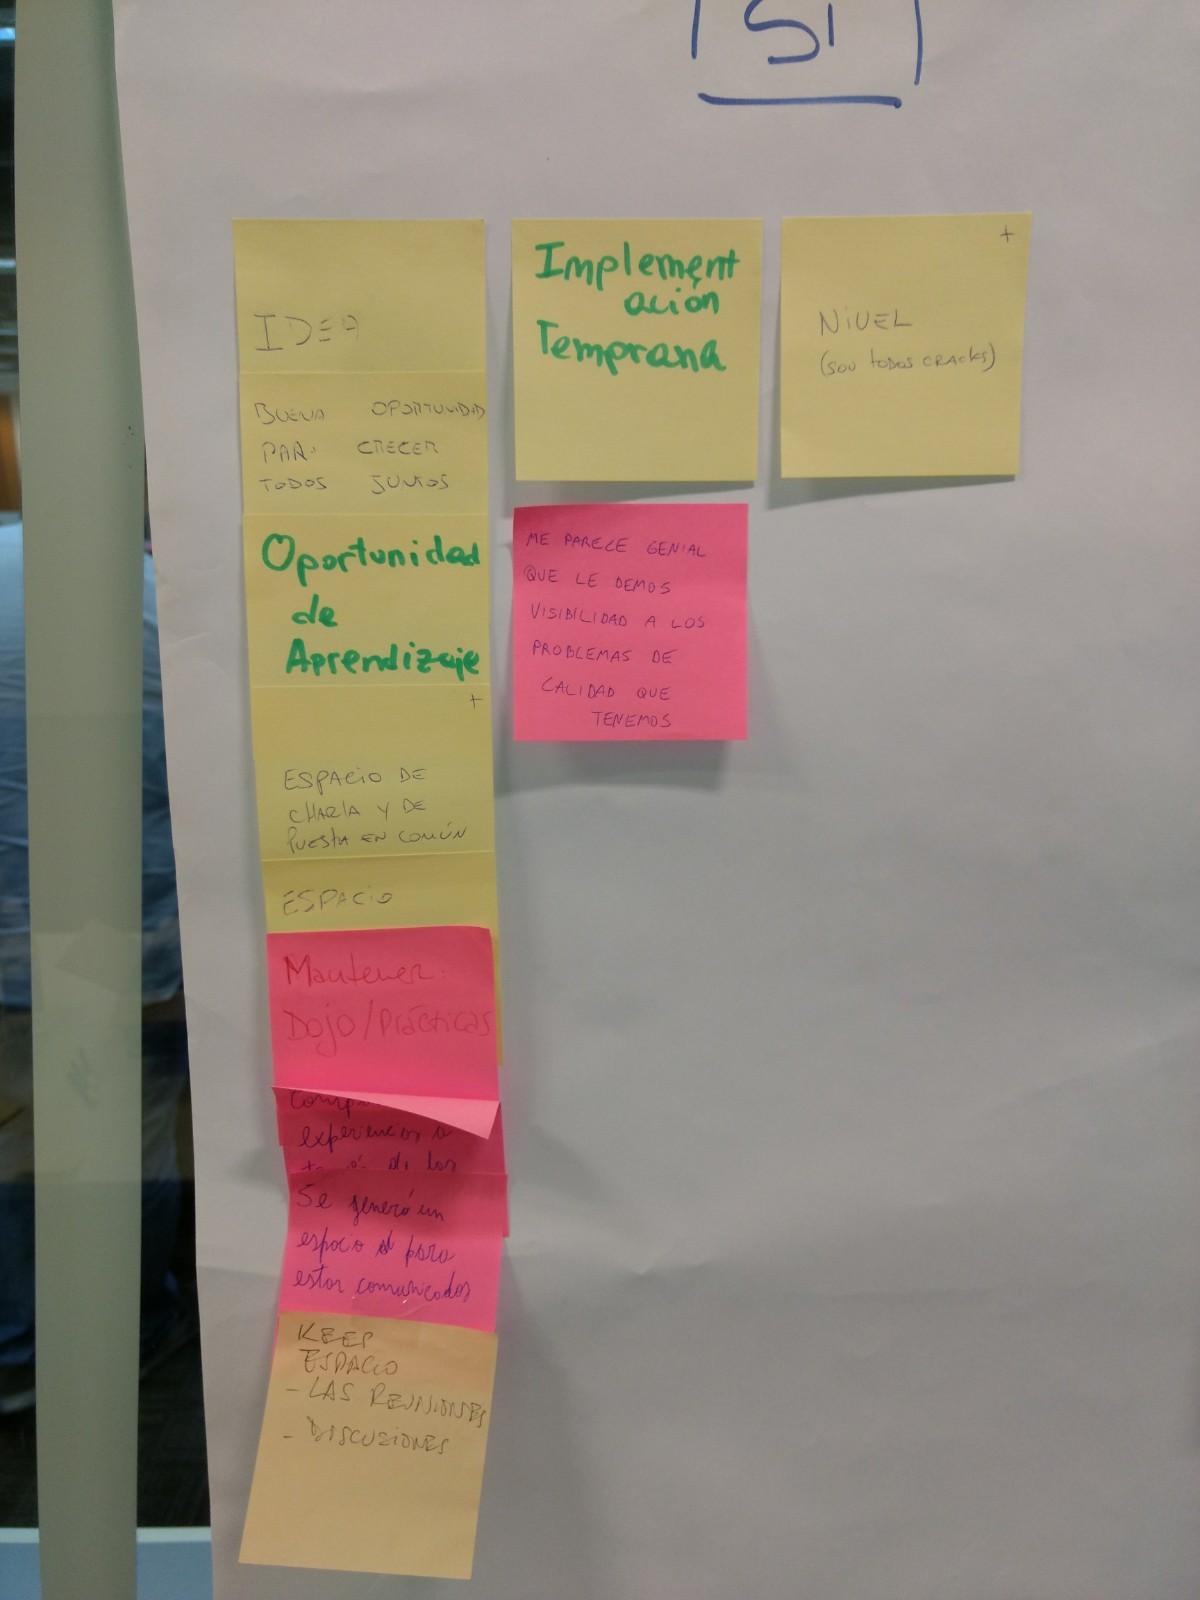 SI
IDEA
BUENA OPORTUNIDAD
PARA CRECER
TODOS JUNTOS
Oportunidad
de
Aprendizaje
+
ESPACIO DE
CHARLA Y DE
PUESTA EN COMÚN
ESPACIO
Mantener:
Dojo/Prácticas
experiencias a
de los
Se generó un
espacio para
estar comunicados
KEEP
ESPACIO
- LAS REUNIONES
- DISCUSIONES
Implement
ación
Temprana
ME PARECE GENIAL
QUE LE DEMOS
VISIBILIDAD A LOS
PROBLEMAS DE
CALIDAD QUE
TENEMOS
+
NIVEL
(SON TODOS CRACKS)